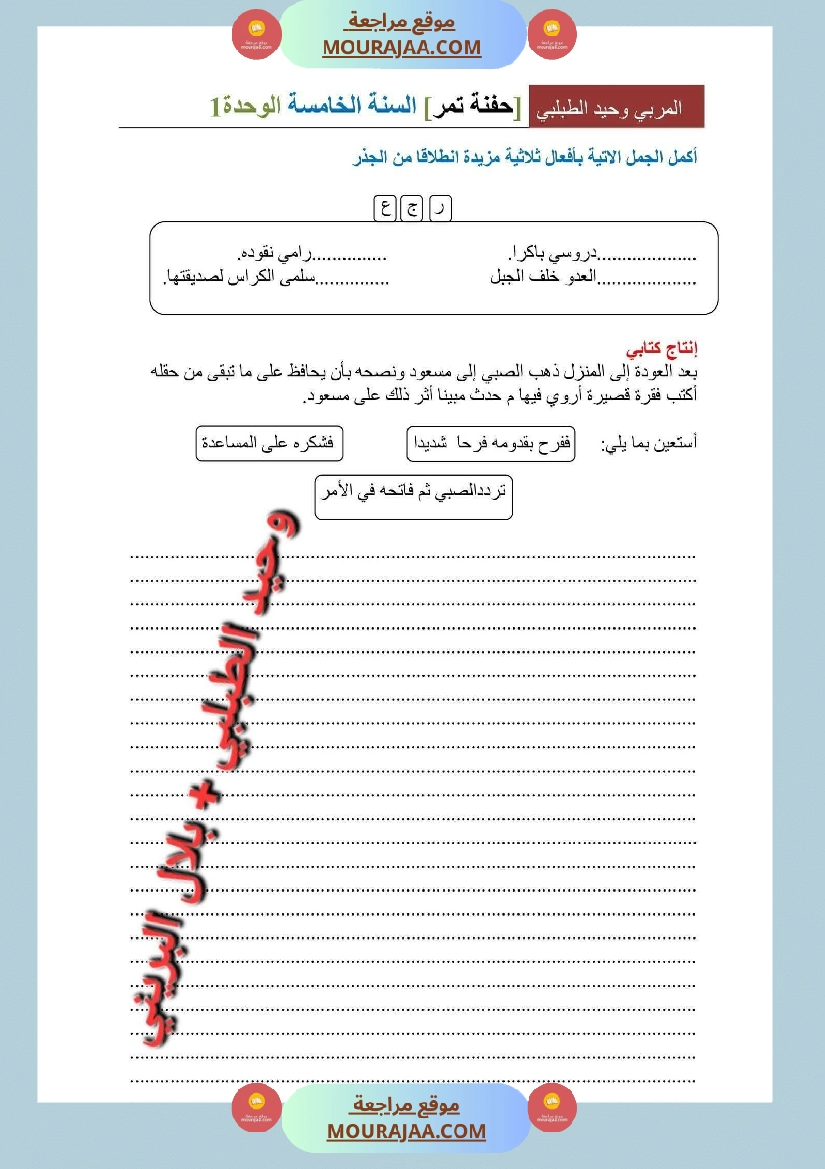 موقع مراجعة
MOURAJAA.COM
المربي وحيد الطبلبي [حفنة تمر] السنة الخامسة الوحدة1
أكمل الجمل الاتية بأفعال ثلاثية مزيدة انطلاقا من الجذر
ر ج ع
....................دروسي باكرا. ...............رامي نقوده.
....................العدو خلف الجبل ...............سلمى الكراس لصديقتها.
إنتاج كتابي
بعد العودة إلى المنزل ذهب الصبي إلى مسعود ونصحه بأن يحافظ على ما تبقى من حقله
أكتب فقرة قصيرة أروي فيها م حدث مبينا أثر ذلك على مسعود.
أستعين بما يلي: ففرح بقدومه فرحا شديدا فشكره على المساعدة
ترددالصبي ثم فاتحه في الأمر
وحيد الطبلبي + بلال البريني
موقع مراجعة
MOURAJAA.COM